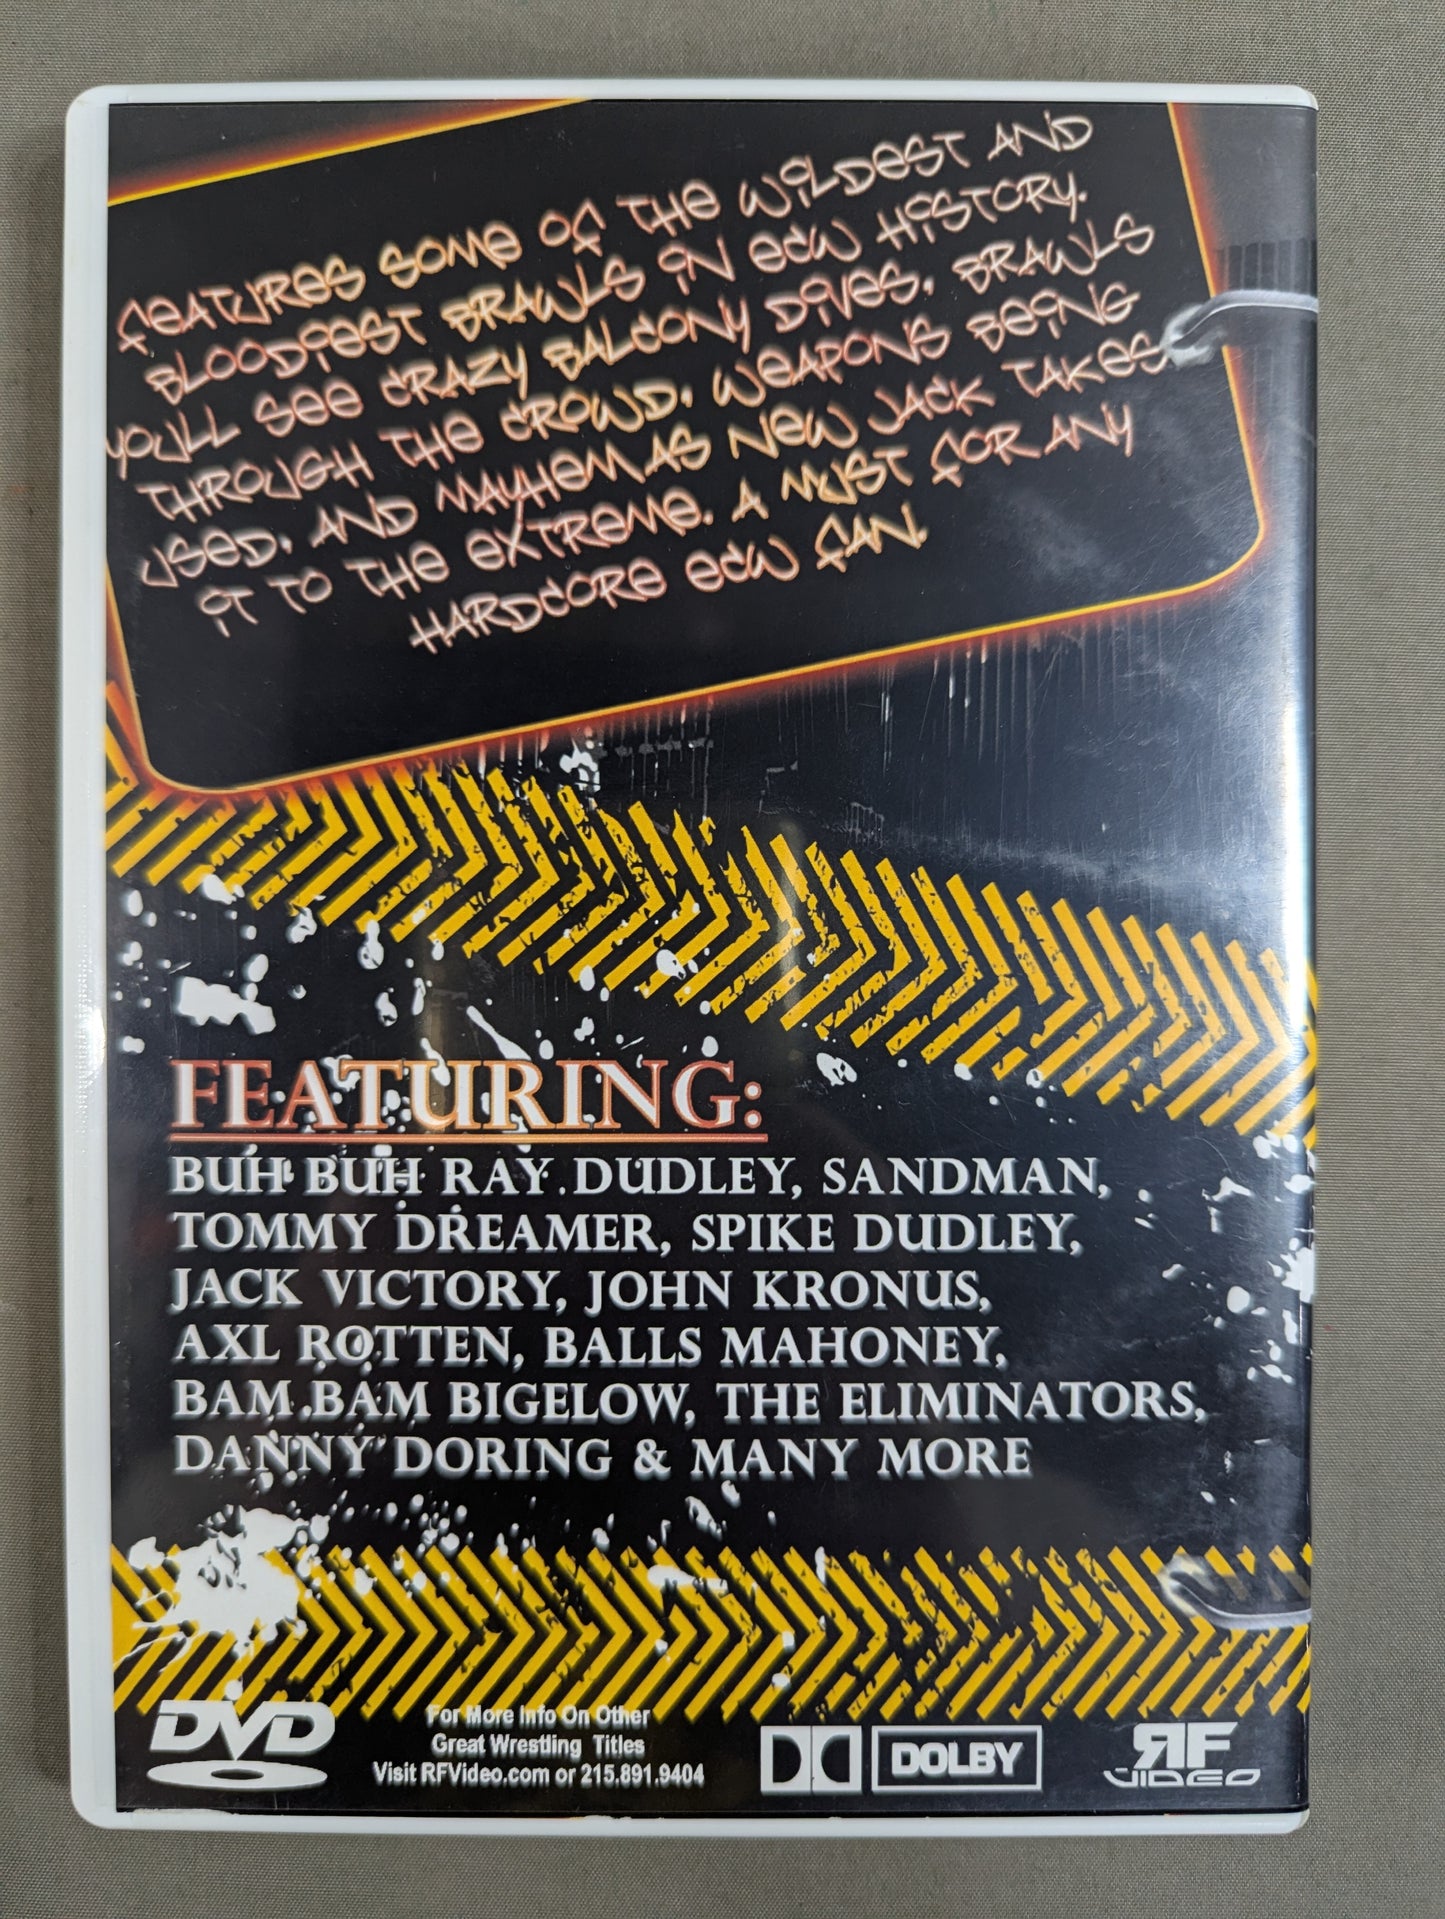 FEATURES SOME OF THE WILDEST AND
BLOODIEST BRAWLS IN ECW HISTORY.
YOU'LL SEE CRAZY BALCONY DIVES, BRAWLS
THROUGH THE CROWD, WEAPONS BEING
USED, AND MAYHEM AS NEW JACK TAKES
IT TO THE EXTREME. A MUST FOR ANY
HARDCORE ECW FAN.
FEATURING:
BUH BUH RAY DUDLEY, SANDMAN,
TOMMY DREAMER, SPIKE DUDLEY,
JACK VICTORY, JOHN KRONUS,
AXL ROTTEN, BALLS MAHONEY,
BAM BAM BIGELOW, THE ELIMINATORS,
DANNY DORING & MANY MORE
DVD
For More Info On Other
Great Wrestling Titles
Visit RFVideo.com or 215.891.9404
DOLBY
RF
VIDEO